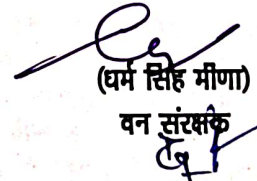 (धर्म सिंह मीणा)
वन संरक्षक